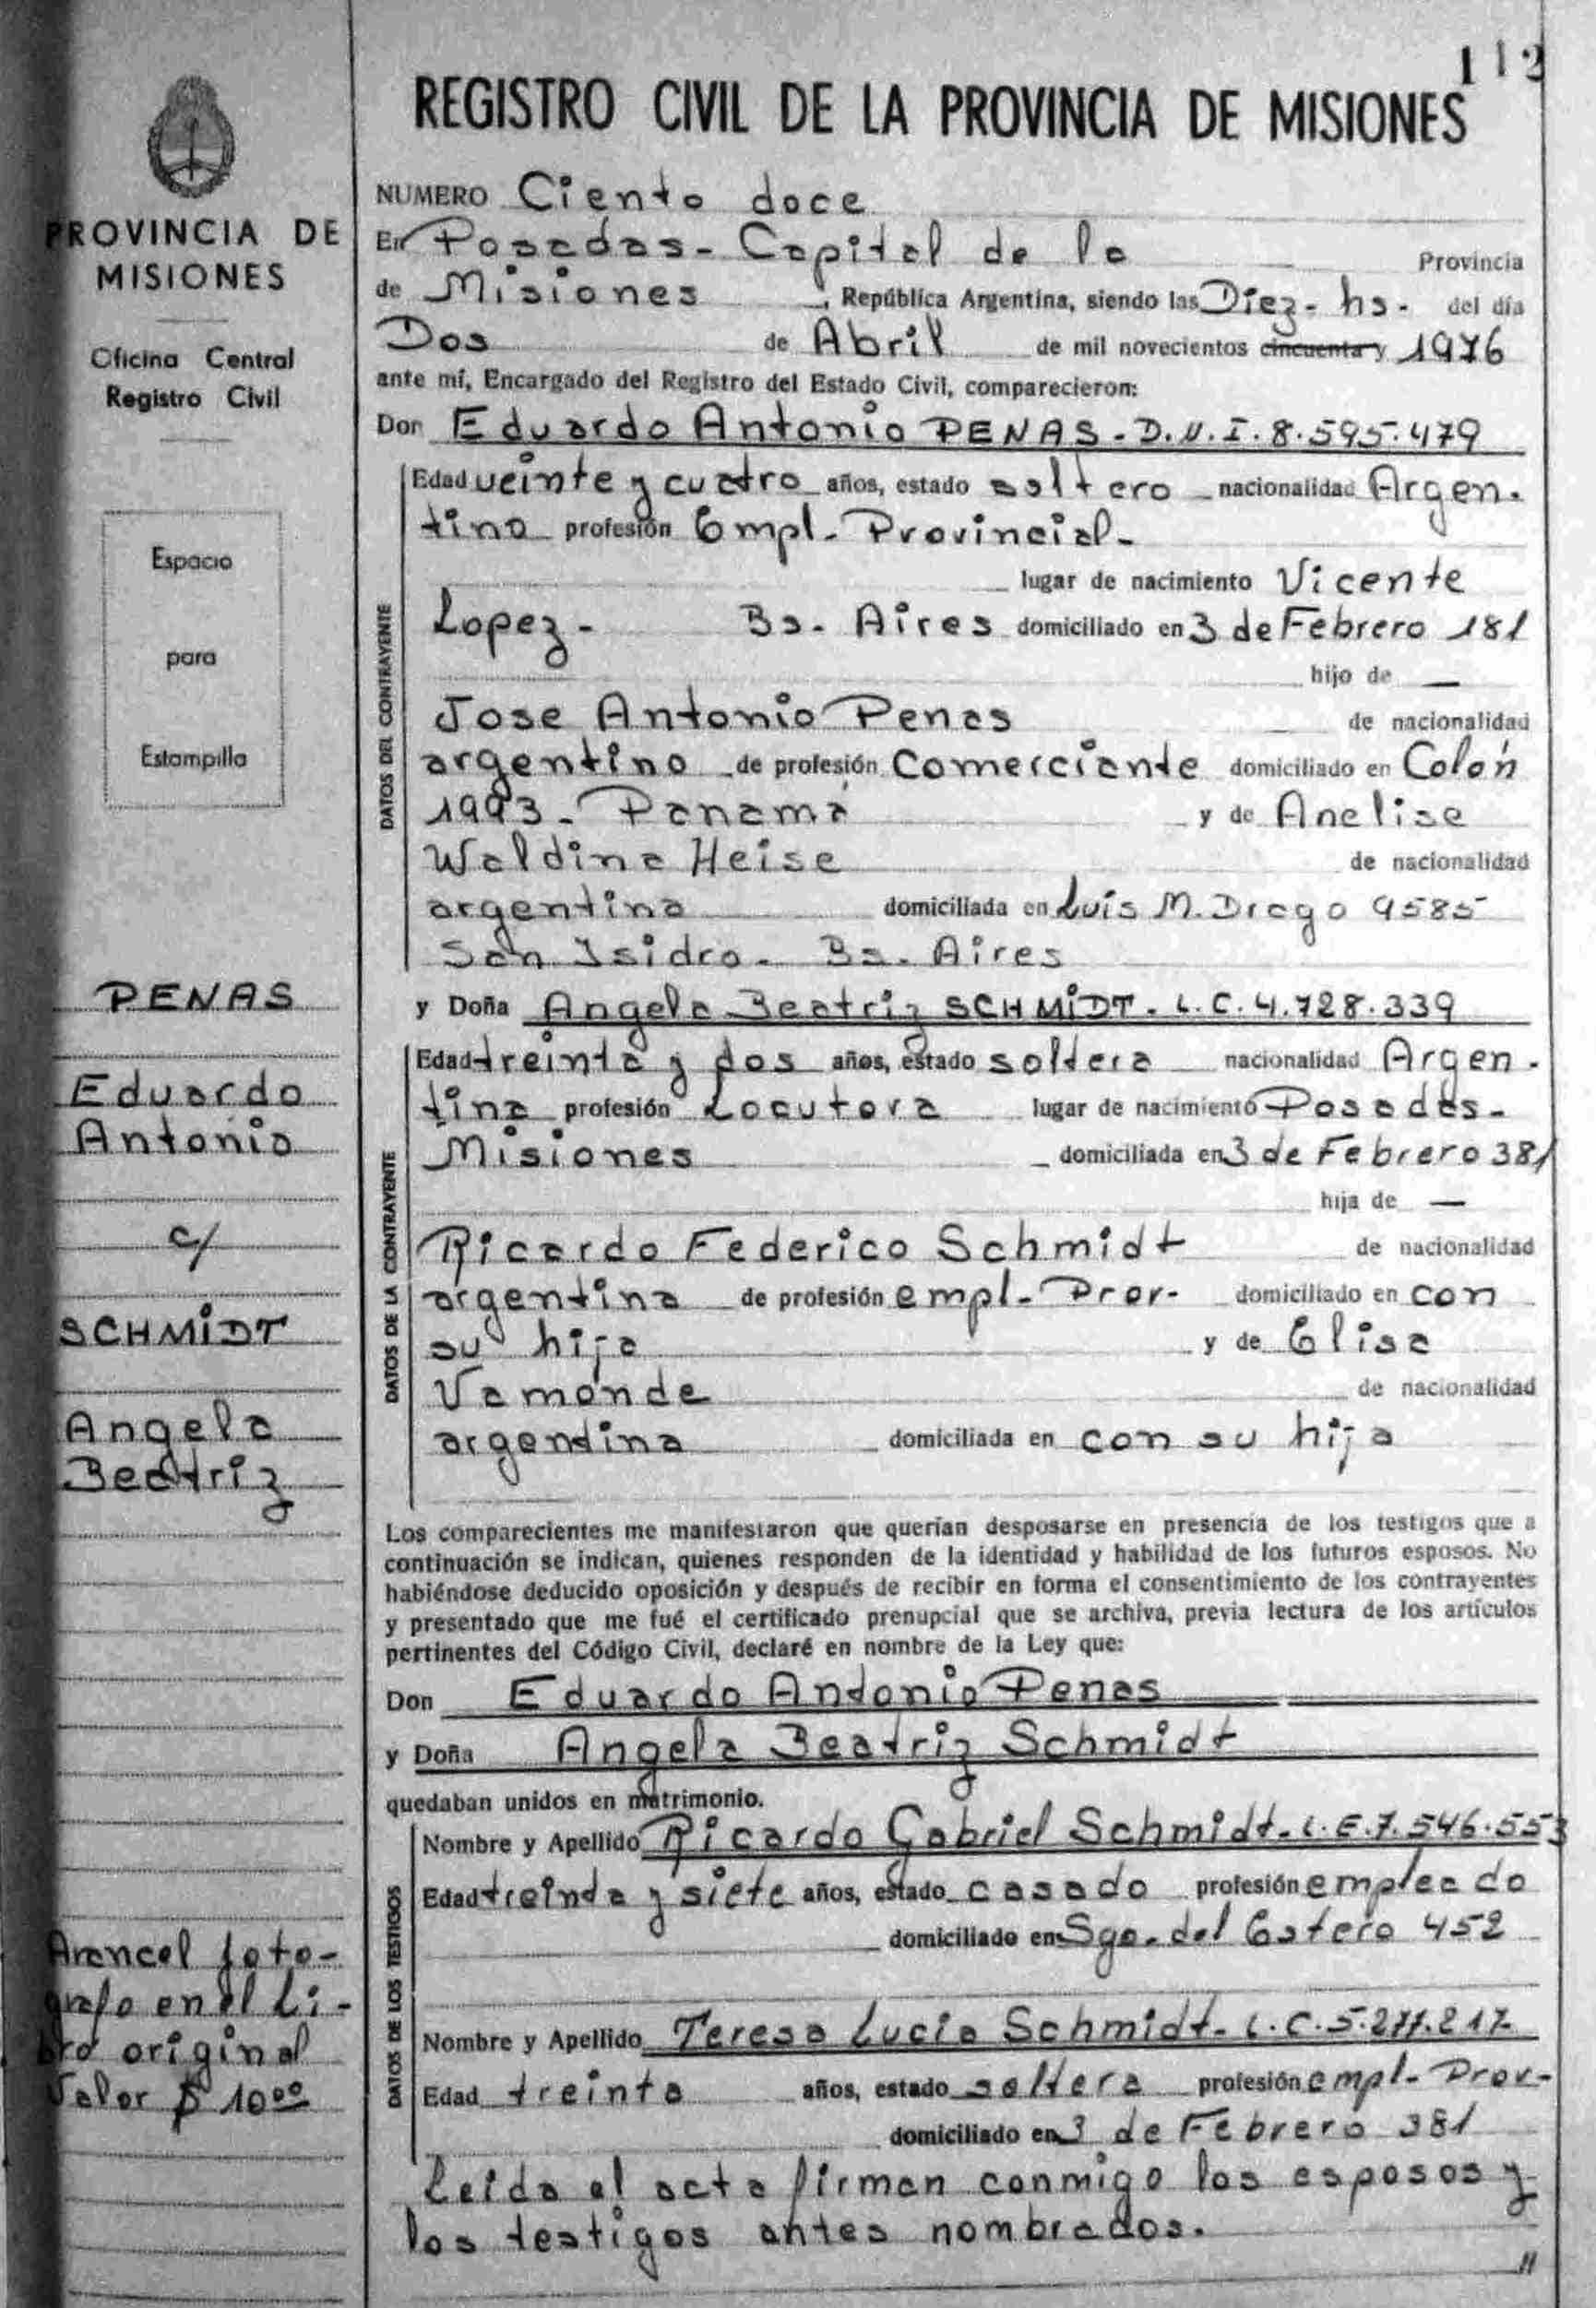 112
REGISTRO CIVIL DE LA PROVINCIA DE MISIONES
PROVINCIA DE
MISIONES
Oficina Central
Registro Civil
Espacio
para
Estampilla
PENAS
Eduardo
Antonio
c/
SCHMIDT
Angela
Beatriz
Arancel foto-
grafo en el Li-
bro original
Valor $ 10⁰⁰
NUMERO Ciento doce
En Posadas - Capital de la Provincia
de Misiones, República Argentina, siendo las Diez - hs - del día
Dos de Abril de mil novecientos cincuenta y 1976
ante mí, Encargado del Registro del Estado Civil, comparecieron:
Don Eduardo Antonio PENAS - D.N.I. 8.595.479
DATOS DEL CONTRAYENTE
Edad veinte y cuatro años, estado soltero nacionalidad Argen-
tina profesión Empl. Provincial -
lugar de nacimiento Vicente
Lopez - Bs. Aires domiciliado en 3 de Febrero 181
hijo de —
Jose Antonio Penas de nacionalidad
argentino de profesión Comerciante domiciliado en Colón
1993 - Panamá y de Anelise
Waldina Heise de nacionalidad
argentina domiciliada en Luis M. Drago 9585
San Isidro - Bs. Aires
y Doña Angela Beatriz SCHMIDT - L.C. 4.728.339
DATOS DE LA CONTRAYENTE
Edad treinta y dos años, estado soltera nacionalidad Argen-
tina profesión Locutora lugar de nacimiento Posadas -
Misiones domiciliada en 3 de Febrero 381
hija de —
Ricardo Federico Schmidt de nacionalidad
argentina de profesión empl - Prov - domiciliado en con
su hija y de Elisa
Vamonde de nacionalidad
argentina domiciliada en con su hija
Los comparecientes me manifestaron que querían desposarse en presencia de los testigos que a
continuación se indican, quienes responden de la identidad y habilidad de los futuros esposos. No
habiéndose deducido oposición y después de recibir en forma el consentimiento de los contrayentes
y presentado que me fué el certificado prenupcial que se archiva, previa lectura de los artículos
pertinentes del Código Civil, declaré en nombre de la Ley que:
Don Eduardo Antonio Penas
y Doña Angela Beatriz Schmidt
quedaban unidos en matrimonio.
DATOS DE LOS TESTIGOS
Nombre y Apellido Ricardo Gabriel Schmidt - L.E. 7.546.553
Edad treinta y siete años, estado casado profesión empleado
domiciliado en Sgo. del Estero 452
Nombre y Apellido Teresa Lucia Schmidt - L.C. 5.277.217
Edad treinta años, estado soltera profesión empl - Prov -
domiciliado en 3 de Febrero 381
Leida el acta firman conmigo los esposos y
los testigos antes nombrados.
//